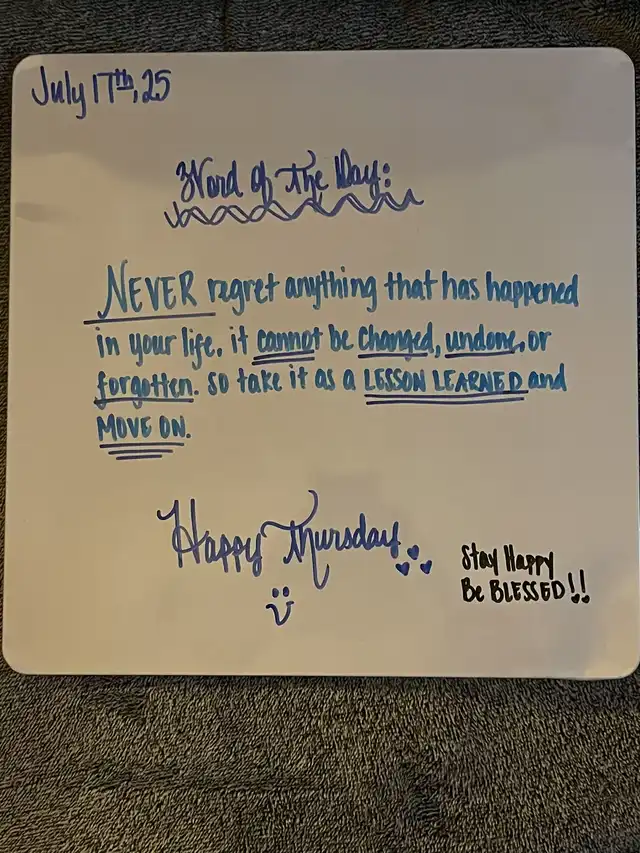 July 17th, 25
Word of the Day:
NEVER regret anything that has happened
in your life. it cannot be changed, undone, or
forgotten. so take it as a LESSON LEARNED and
MOVE ON.
Happy Thursday
Stay Happy
Be BLESSED!!